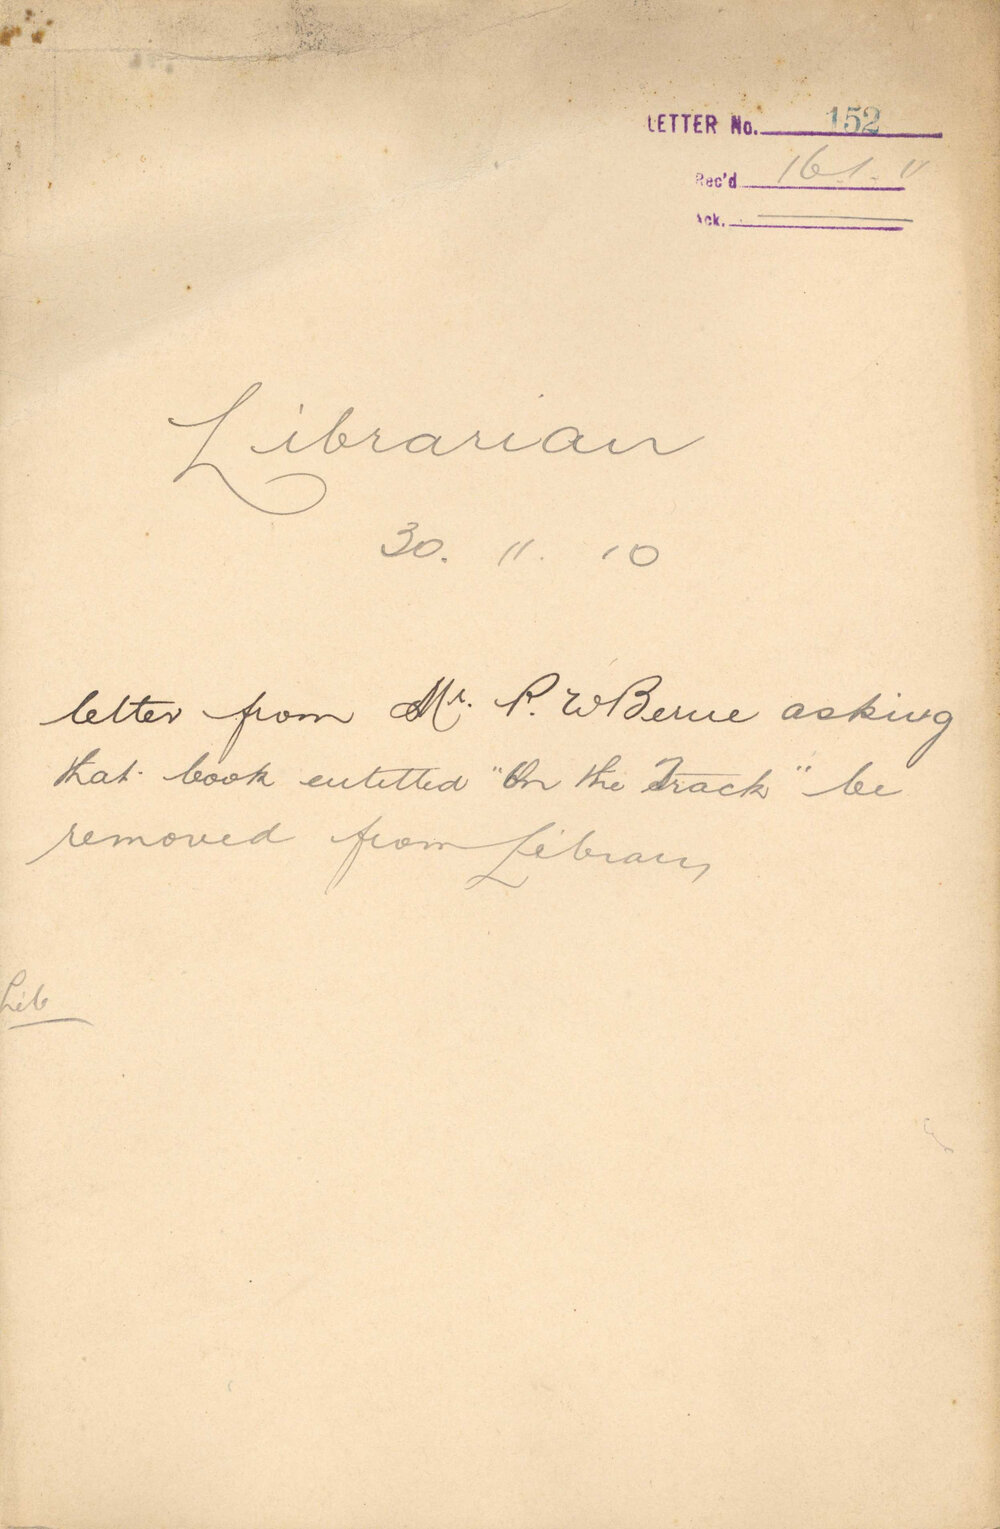 LETTER No. 152
Rec'd 16.1.11
Ack.
Librarian
30. 11. 10
letter from Mr. P. W Berne asking
that book entitled "On the Track" be
removed from Library
Lib